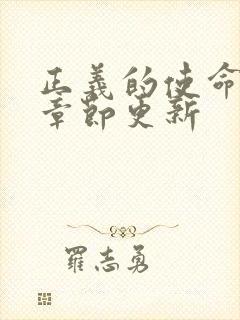 正義的使命
章節更新
羅志勇